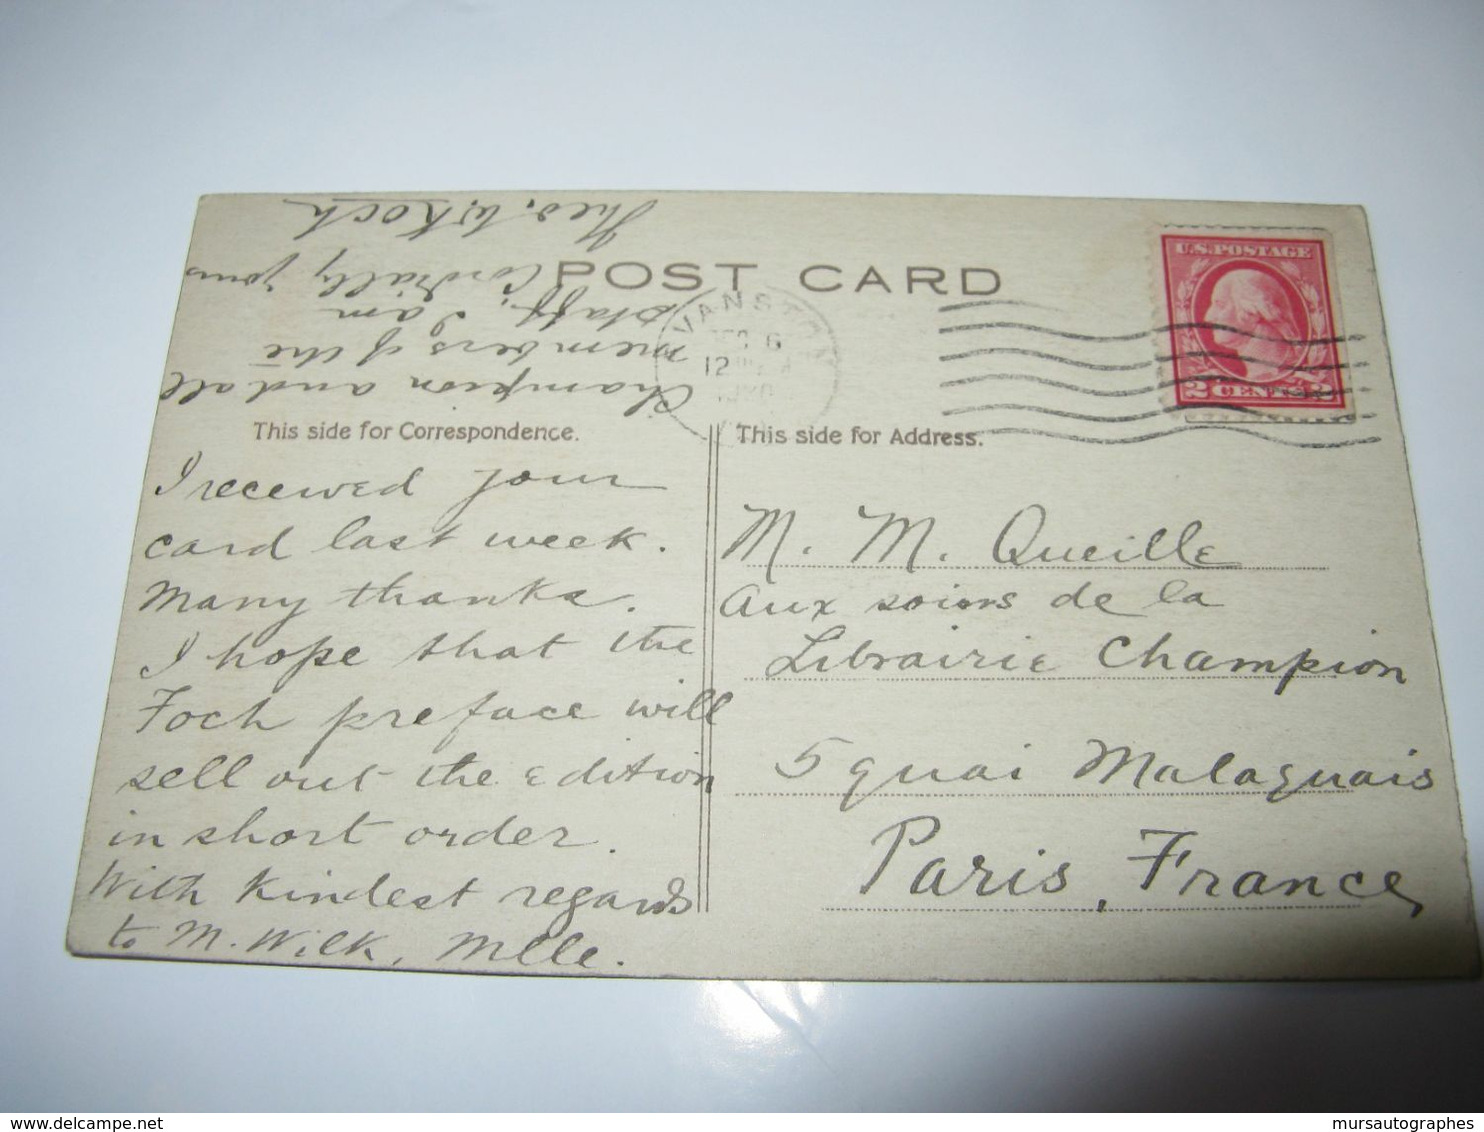 POST CARD
U.S. POSTAGE
2 CENTS 2
VANSTON
6
12
This side for Correspondence.
This side for Address.
I received your
card last week.
Many thanks.
I hope that the
Foch preface will
sell out the edition
in short order.
With kindest regards
to M. Wilk, Mlle.
Champion and all
members of the
staff, I am
Cordially yours
Theo. W. Koch
M. M. Queille
Aux soins de la
Librairie Champion
5 quai Malaquais
Paris, France
delcampe.net
mursautographes